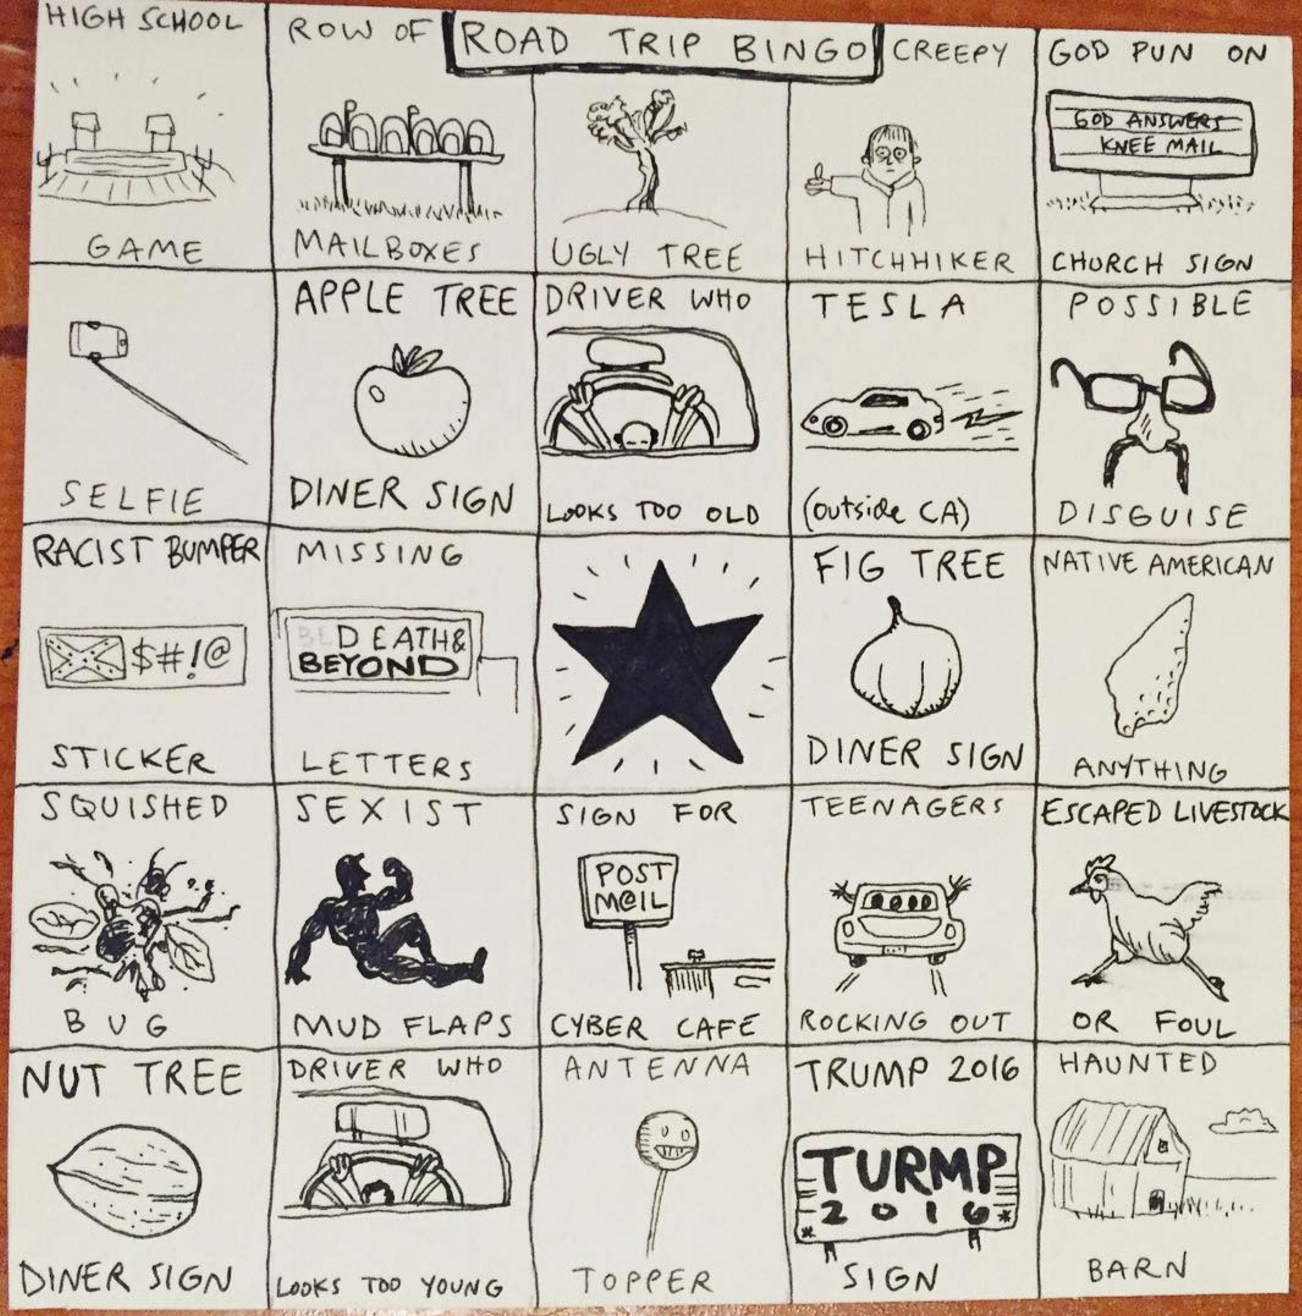 ROAD TRIP BINGO
HIGH SCHOOL
GAME
ROW OF
MAILBOXES
UGLY TREE
CREEPY
HITCHHIKER
GOD PUN ON
GOD ANSWERS
KNEE MAIL
CHURCH SIGN
SELFIE
APPLE TREE
DINER SIGN
DRIVER WHO
LOOKS TOO OLD
TESLA
(outside CA)
POSSIBLE
DISGUISE
RACIST BUMPER
$#!@
STICKER
MISSING
BED EATH&
BEYOND
LETTERS
FIG TREE
DINER SIGN
NATIVE AMERICAN
ANYTHING
SQUISHED
BUG
SEXIST
MUD FLAPS
SIGN FOR
POST
M@IL
CYBER CAFE
TEENAGERS
ROCKING OUT
ESCAPED LIVESTOCK
OR FOUL
NUT TREE
DINER SIGN
DRIVER WHO
LOOKS TOO YOUNG
ANTENNA
TOPPER
TRUMP 2016
TURMP
*2016*
SIGN
HAUNTED
BARN